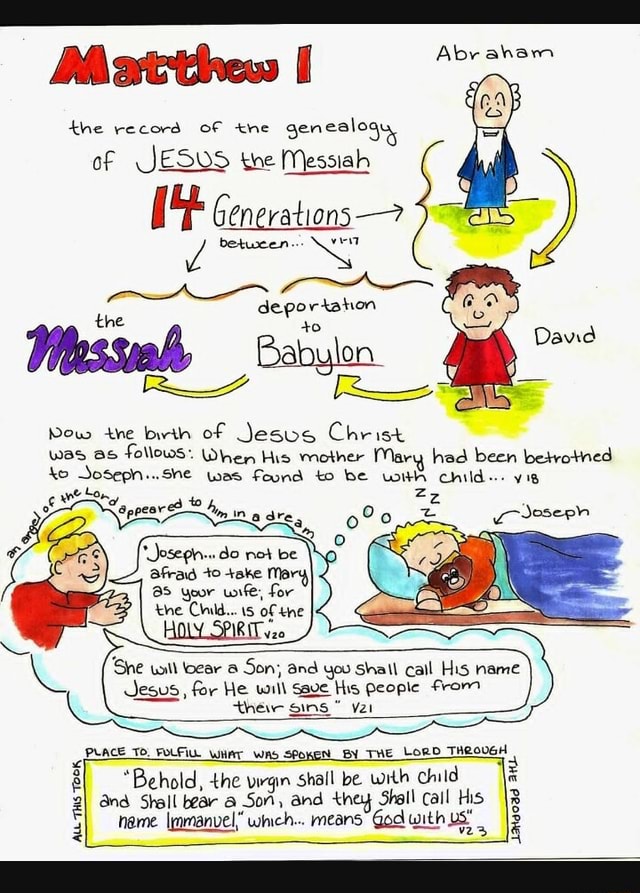 Matthew 1
Abraham
the record of the genealogy
of JESUS the Messiah
14 Generations
between... v1-17
the
Messiah
deportation
to
Babylon
David
Now the birth of Jesus Christ
was as follows: When His mother Mary had been betrothed
to Joseph...she was found to be with child... v18
an angel of the Lord appeared to him in a dream
z z
z
Joseph
"Joseph... do not be
afraid to take Mary
as your wife; for
the Child... is of the
HOLY SPIRIT" v20
"She will bear a Son; and you shall call His name
Jesus, for He will save His people from
their sins" v21
ALL THIS TOOK
PLACE TO FULFILL WHAT WAS SPOKEN BY THE LORD THROUGH
THE PROPHET
"Behold, the virgin shall be with child
and shall bear a Son, and they shall call His
name Immanuel," which... means "God with us"
v23